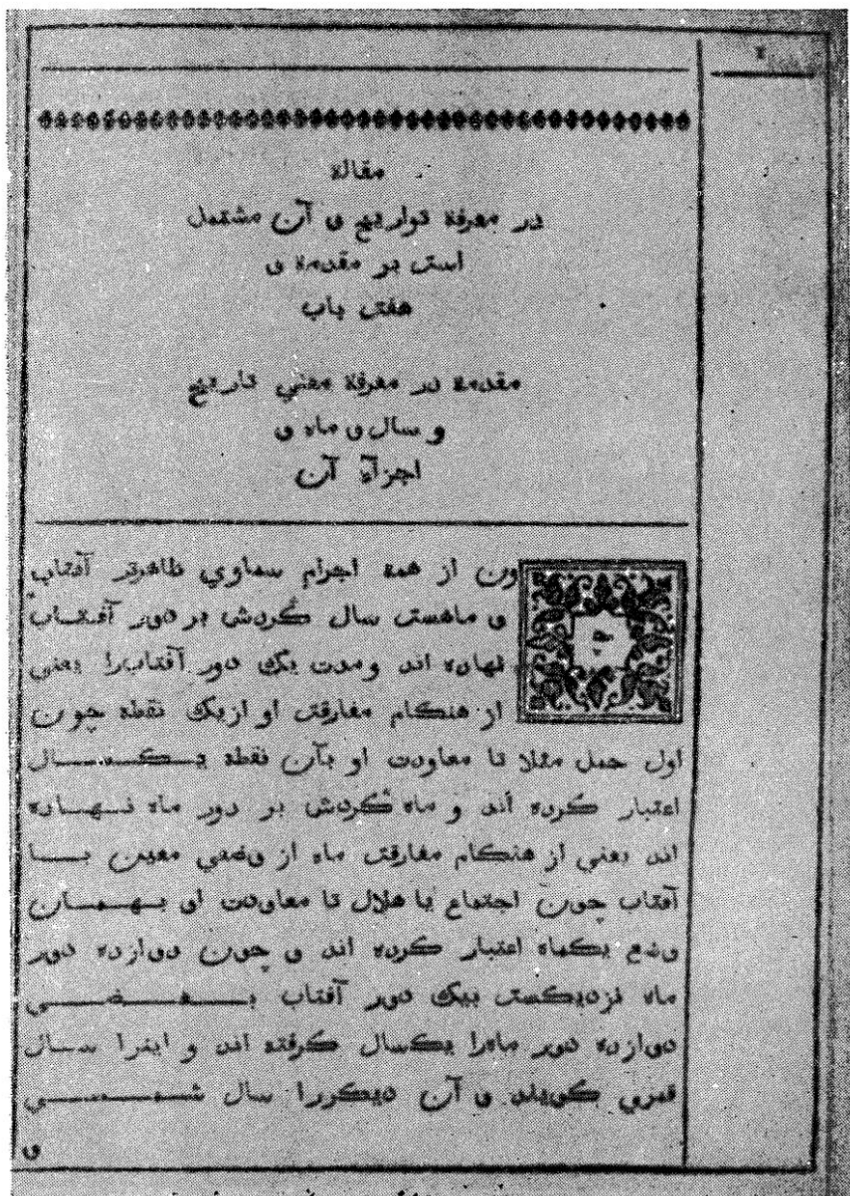 مقالة
در معرفة تواريخ و آن مشتمل
است بر مقدمه و
هفت باب
مقدمه در معرفة معني تاريخ
و سال و ماه و
اجزآء آن
چون از همه اجرام سماوي ظاهرتر آفتاب
و ماهست سال گردش بر دور آفتاب
نهاده اند ومدت يك دور آفتاب‌را يعني
از هنكام مفارقت او ازيك نقطه چون
اول حمل مثلا تا معاودت او بآن نقطه يكسال
اعتبار كرده اند و ماه گردش بر دور ماه نهاده
اند يعني از هنكام مفارقت ماه از وضعي معين با
آفتاب چون اجتماع يا هلال تا معاودت او بهمان
وضع يكماه اعتبار كرده اند و چون دوازده دور
ماه نزديكست بيك دور آفتاب بعضي
دوازده دور ماه‌را يكسال كرفته اند و اينرا سال
قمري كويند و آن ديكررا سال شمسي
و